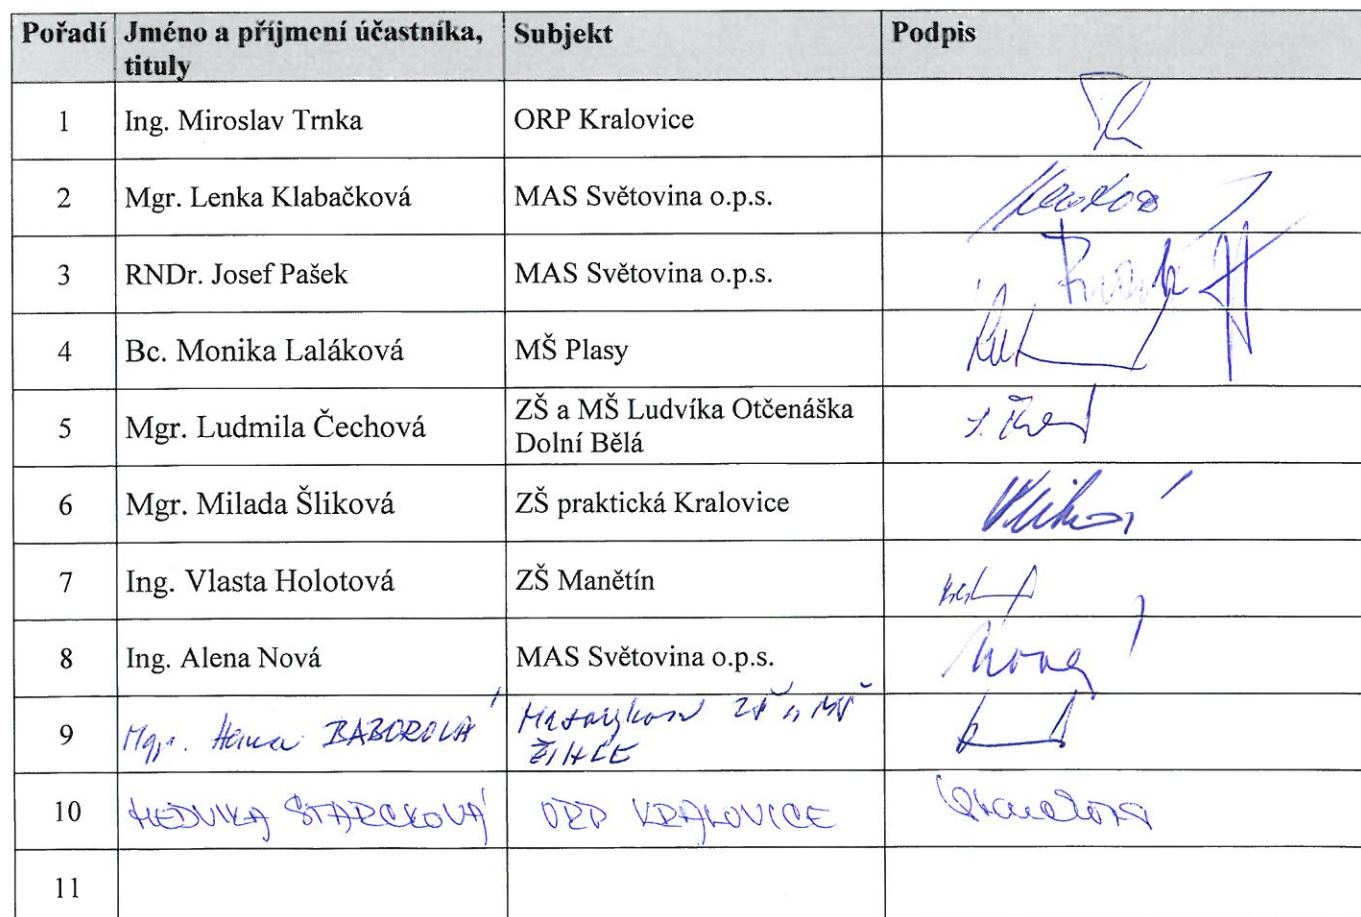 Pořadí Jméno a příjmení účastníka, tituly Subjekt Podpis
1 Ing. Miroslav Trnka ORP Kralovice
2 Mgr. Lenka Klabačková MAS Světovina o.p.s.
3 RNDr. Josef Pašek MAS Světovina o.p.s.
4 Bc. Monika Laláková MŠ Plasy
5 Mgr. Ludmila Čechová ZŠ a MŠ Ludvíka Otčenáška Dolní Bělá
6 Mgr. Milada Šliková ZŠ praktická Kralovice
7 Ing. Vlasta Holotová ZŠ Manětín
8 Ing. Alena Nová MAS Světovina o.p.s. Nová
9 Mgr. Hana BABOROVÁ Masarykova ZŠ a MŠ ŽIHLE
10 HEDVIKA ŠTARCKOVÁ ORP KRALOVICE
11